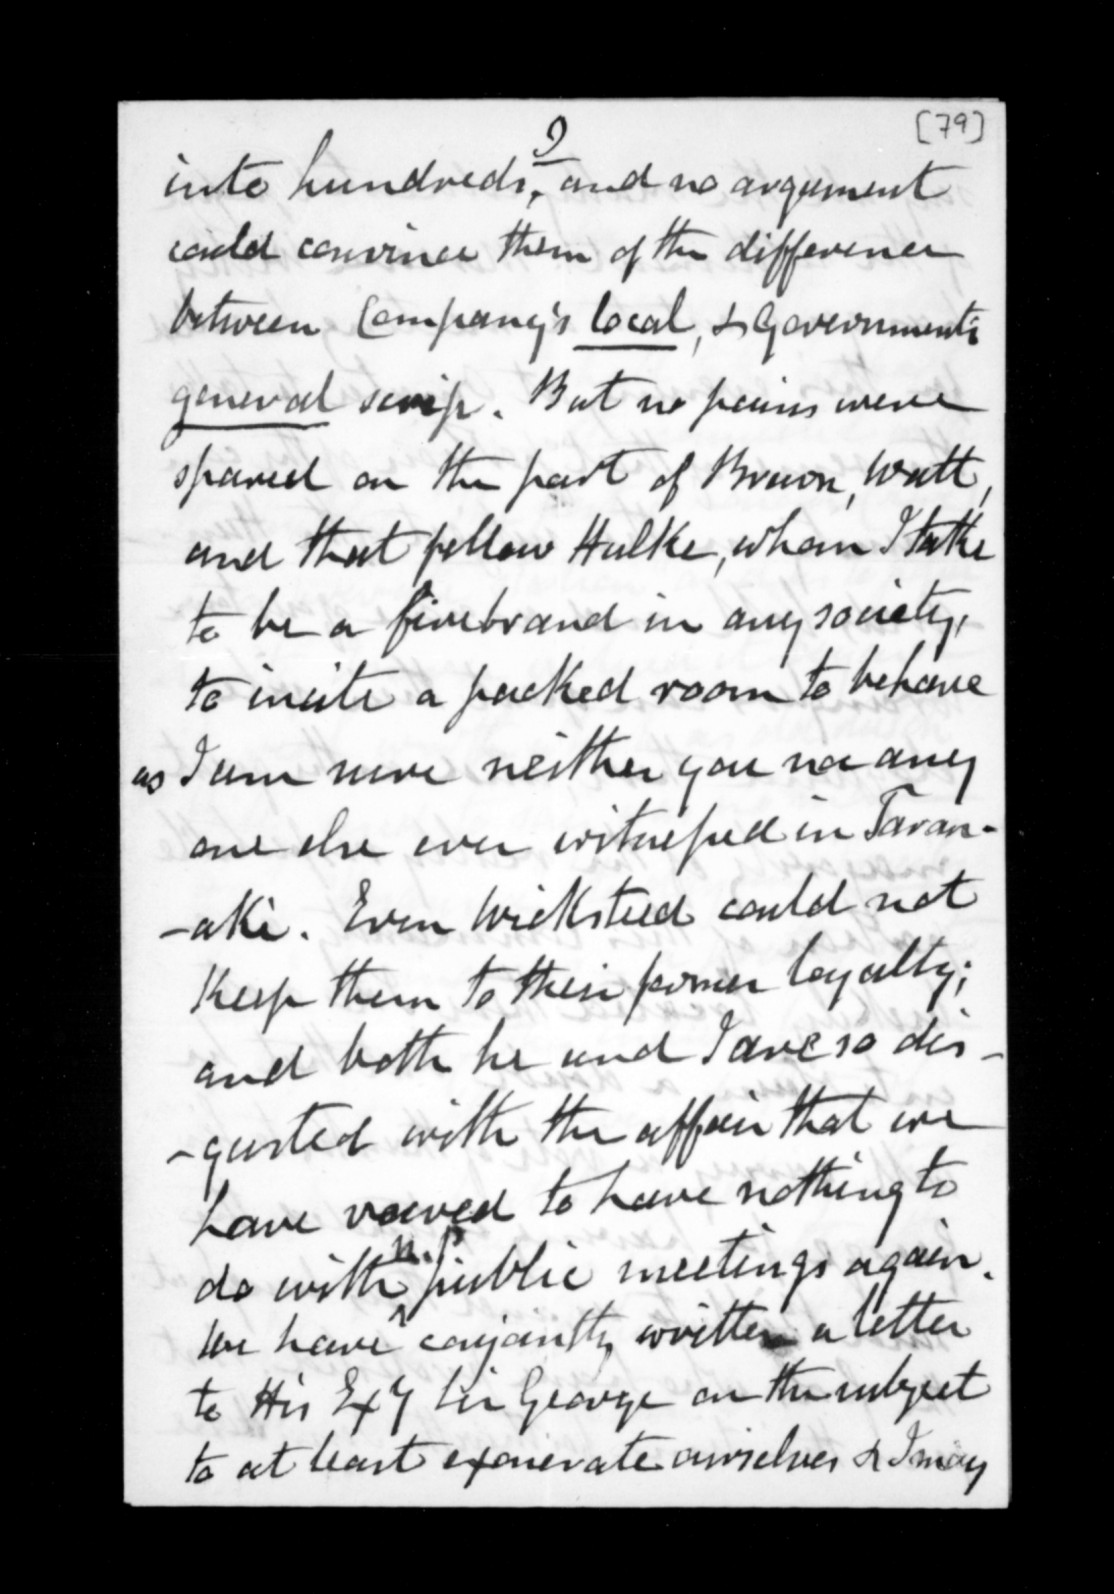 [79]
9
into hundreds, and no argument
could convince them of the difference
between Company's local, & Governments
general scrip. But no pains were
spared on the part of Brown, Watt,
and that fellow Hulke, whom I take
to be a firebrand in any society,
to incite a packed room to behave
as I am sure neither you nor any
one else ever witnessed in Taran-
-aki. Even Wicksteed could not
keep them to their former loyalty;
and both he and I are so dis-
-gusted with the affair that we
have vowed to have nothing to
do with n.p. public meetings again.
We have conjointly written a letter
to His Exy Sir George on the subject
to at least exonerate ourselves & I may